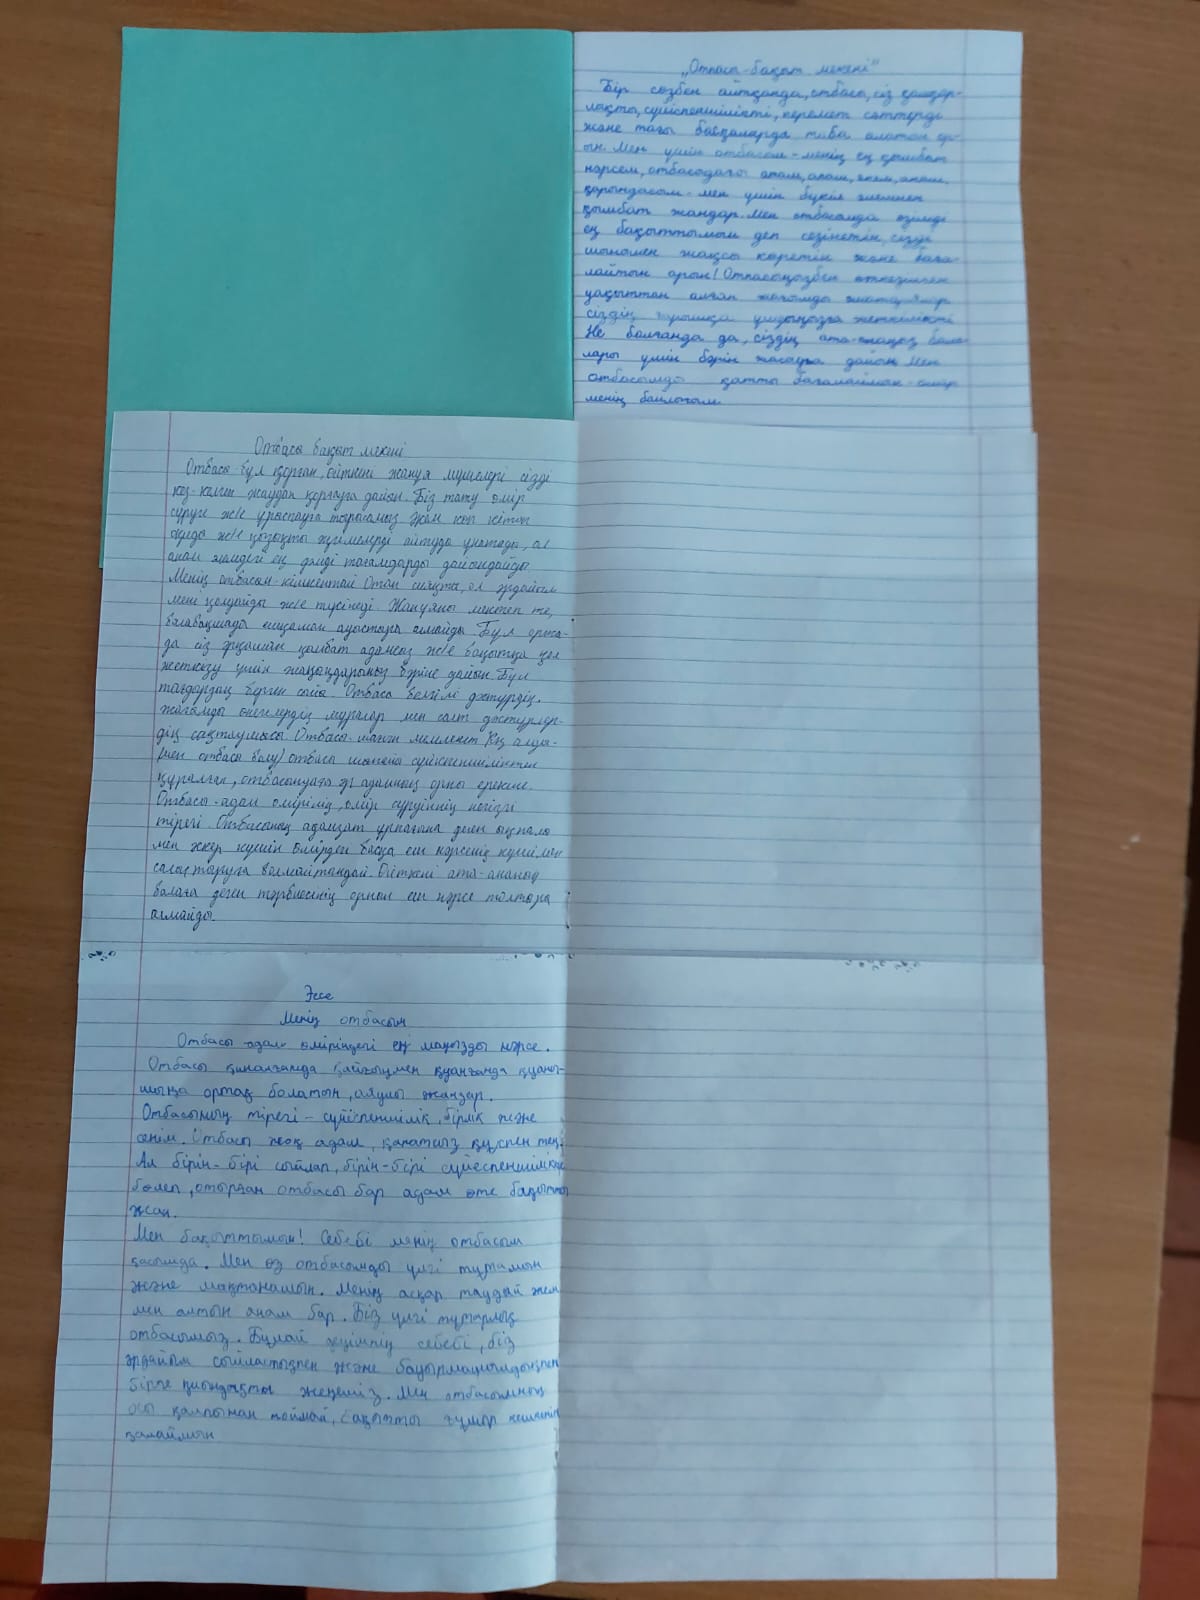 „Отпасы-бақыт мекені"
Бір сөзбен айтқанда, отбасы, сіз қамқор-
лықты, сүйіспеншілікті, керемет сәттерді
және тағы басқаларды таба алатын ор-
ын. Мен үшін отбасым - менің ең қымбат
нәрсем, отбасодағы атам, апам, әкем, анам,
қарындасым - мен үшін бүкіл әлемнен
қымбат жандар. Мен отбасымда өзімді
ең бақыттымын деп сезінетін, сізді
шынымен жақсы көретін және баға-
лайтын орын! Отпасыңызбен өткізілген
уақыттан алған жағымды
сіздің жеткілікті
Не болғанда да, сіздің ата-анаңыз бала-
лары үшін бәрін жасауға дайын. Мен
отбасымды қатты бағалаймын - олар
менің байлығым.
Отбасы бақыт мекені
Отбасы - бұл қорған, өйткені жанұя мүшелері сізді
кез-келген жаудан қорғауға дайын. Біз тату өмір
сүруге ж/е ұрыспауға тырысамыз. Әкем көп кітап
оқиды ж/е қызықты әңгімелерді айтуды ұнатады, ал
анам әлемдегі ең дәмді тағамдарды дайындайды.
Менің отбасым - кішкентай Отан сияқты, ол әрдайым
мені қолдайды ж/е түсінеді. Жанұяны мектеп те,
балабақшада ешқашан ауыстыра алмайды. Бұл орта-
да сіз әрқашан қымбат адамсыз ж/е бақытқа қол
жеткізу үшін жақындарыңыз бәріне дайын. Бұл
тағдырдың берген сыйы. Отбасы белгілі дәстүрдің,
жағымды өнегелердің мұралар мен салт дәстүрлер-
дің сақтаушысы. Отбасы - шағын мемлекет. Ең алды-
мен отбасы болу) отбасы шынайы сүйіспеншіліктен
құралған, отбасындағы әр адамның орны ерекше.
Отбасы - адам өмірінің, өмір сүруінің негізгі
тірегі. Отбасының адамзат ұрпағына деген ықпалы
мен әсер күшін өмірдегі басқа еш нәрсенің күшімен
салыстыруға болмайтындай. Өйткені ата-ананың
балаға деген тәрбиесінің орнын еш нәрсе толтыра
алмайды.
Эссе
Менің отбасым
Отбасы - адам өміріндегі ең маңызды нәрсе.
Отбасы қиналғанда қайғыңмен қуанғанда қуаны-
шыңа ортақ болатын, аяулы жандар.
Отбасының тірегі - сүйіспеншілік, бірлік және
сенім. Отбасы жоқ адам, қанатсыз құспен тең.
Ал бірін-бірі сыйлап, бірін-бірі сүйеспеншілікке
бөлеп, отырған отбасы бар адам өте бақытты
жан.
Мен бақыттымын! Себебі менің отбасым
қасымда. Мен өз отбасымды үлгі тұтамын
және мақтанамын. Менің асқар таудай әкем
мен алтын анам бар. Біз үлгі тұтарлық
отбасымыз. Бұлай себебі, біз
әрдайым сыйластықпен және бауырмашылдықпен
бірге қиындықты жеңеміз. Мен отбасымның
осы қалпынан таймай, бақытты ғұмыр кешкенін
қалаймын